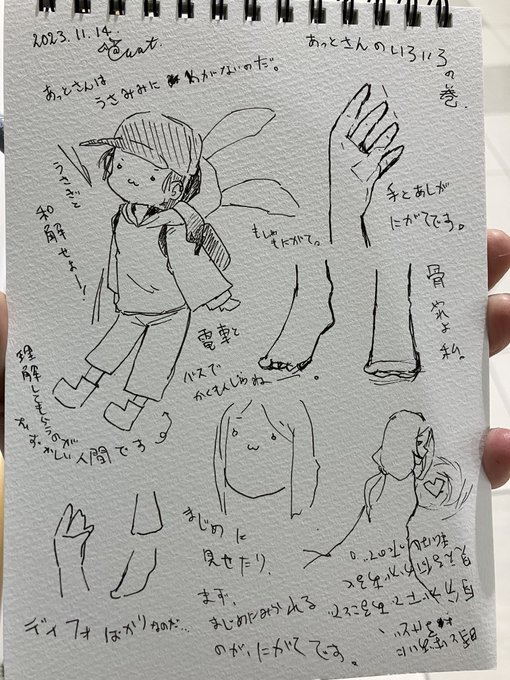 2023.11.14.
@uat.
あっとさんのいろいろ
の巻.
あっとさんは
うさみみに
がないのだ。
うさぎと
和解せよー!
手とあしが
にがてです。
もしゃもにがて。
骨
やれよ私。
電車と
バスで
かくもんじゃね
ー。
理解してもらうのが
むずかしい
人間です
まじめに
見せたり、
まず、
まじめにみられる
のが、にがてです。
ディフォばかりなのだ…